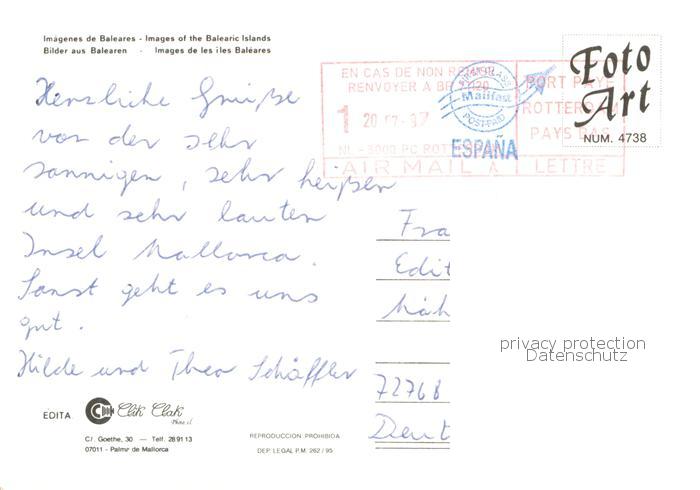 Imágenes de Baleares - Images of the Balearic Islands
Bilder aus Balearen - Images de les iles Baléares
Herzliche Grüße
von der sehr
sonnigen, sehr heißen
und sehr lauten
Insel Mallorca.
Sonst geht es uns
gut.
Hilde und Theo Schäffler
EN CAS DE NON
RENVOYER A
1 20
NL - 3000 PC
AIR MAIL A LETTRE
PORT PAYE
ROTTERDAM
PAYS BAS
Mailfast
POSTPAID
ESPAÑA
Foto
Art
NUM. 4738
Fra
Edit
72768
Deut
privacy protection
Datenschutz
EDITA
Clik Clak
C/. Goethe, 30 — Telf. 28 91 13
07011 - Palma de Mallorca
REPRODUCCION PROHIBIDA
DEP. LEGAL P.M. 262 / 95